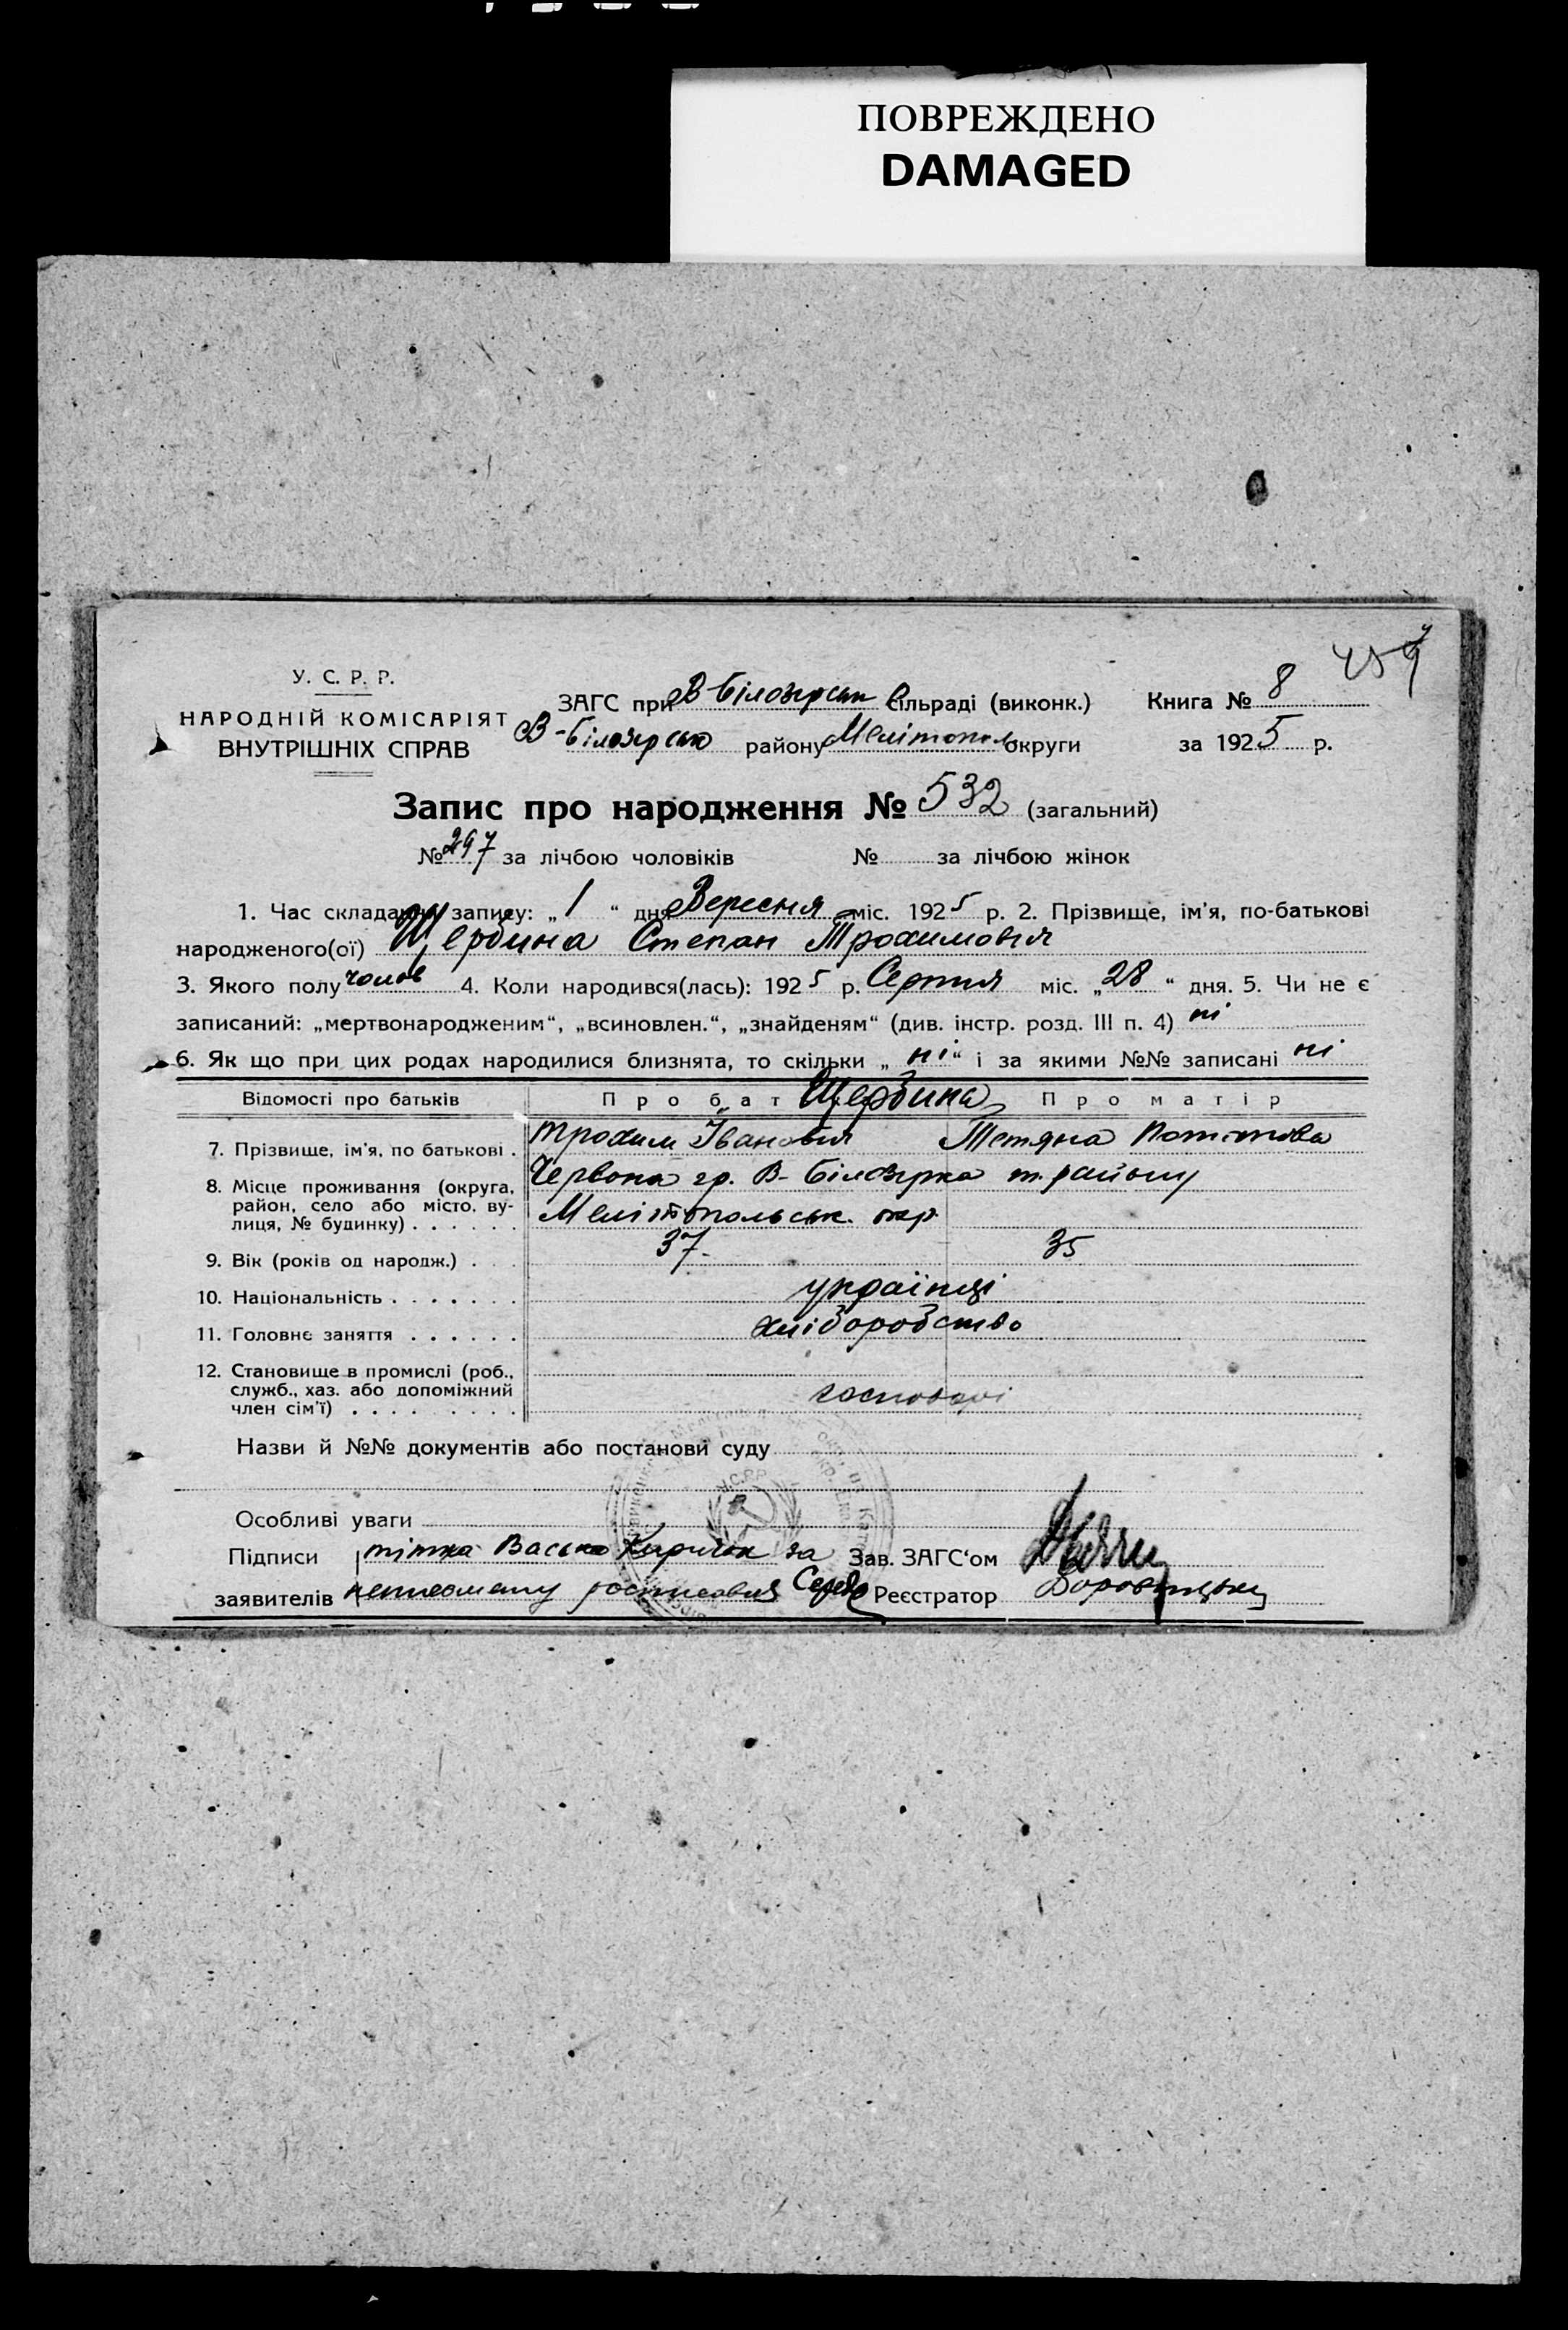 ПОВРЕЖДЕНО
DAMAGED
У. С. Р. Р.
НАРОДНІЙ КОМІСАРІЯТ
ВНУТРІШНІХ СПРАВ
ЗАГС при В-Білозірськ Сільраді (виконк.)
В-Білозірсько району Мелітопол округи
Книга № 8
за 1925 р.
Запис про народження № 532 (загальний)
№ 297 за лічбою чоловіків № за лічбою жінок
1. Час складання запису: „1“ дня Вересня міс. 1925 р. 2. Прізвище, ім'я, по-батькові
народженого(ої) Щербина Степан Трохимович
3. Якого полу чолов 4. Коли народився(лась): 1925 р. Серпня міс. „28“ дня. 5. Чи не є
записаний: „мертвонародженим“, „всиновлен.“, „знайденям“ (див. інстр. розд. III п. 4) ні
6. Як що при цих родах народилися близнята, то скільки „ні“ і за якими №№ записані ні
Відомості про батьків Про бат Щербина Про матір
7. Прізвище, ім'я, по батькові . Трохим Іванович Тетяна
8. Місце проживання (округа, район, село або місто, вулиця, № будинку) . . . . . . Червона гр. В-Білозірка т. району
Мелітопольськ. окр.
9. Вік (років од народж.) . . . 37. 35
10. Національність . . . . . . . українці
11. Головне заняття . . . . . . хліборобство
12. Становище в промислі (роб., служб., хаз. або допоміжний член сім'ї) . . . . . . . . . господарі
Назви й №№ документів або постанови суду
У.С.Р.Р.
Особливі уваги
Підписи тітка Васько за Зав. ЗАГС'ом
заявителів неписьмену росписався Реєстратор